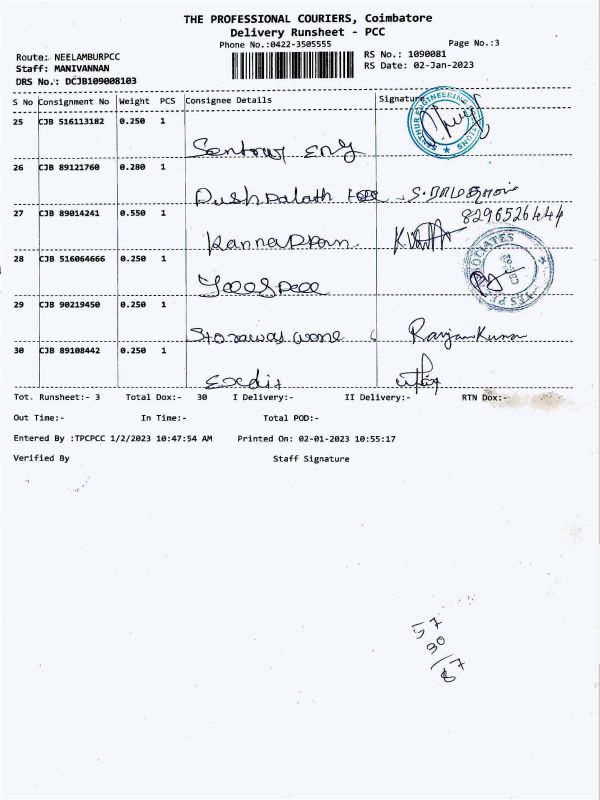 THE PROFESSIONAL COURIERS, Coimbatore
Delivery Runsheet - PCC
Phone No.:0422-3505555
Page No.:3
Route: NEELAMBURPCC
RS No.: 1090081
Staff: MANIVANNAN
RS Date: 02-Jan-2023
DRS No.: DCJB109008103
S No Consignment No Weight PCS Consignee Details Signature
25 CJB 516113182 0.250 1
26 CJB 89121760 0.280 1
27 CJB 89014241 0.550 1
8296526444
28 CJB 516064666 0.250 1
29 CJB 90219450 0.250 1
Ranjan Kumar
30 CJB 89108442 0.250 1
Tot. Runsheet:- 3 Total Dox:- 30 I Delivery:- II Delivery:- RTN Dox:-
Out Time:- In Time:- Total POD:-
Entered By :TPCPCC 1/2/2023 10:47:54 AM Printed On: 02-01-2023 10:55:17
Verified By Staff Signature
57
30
87